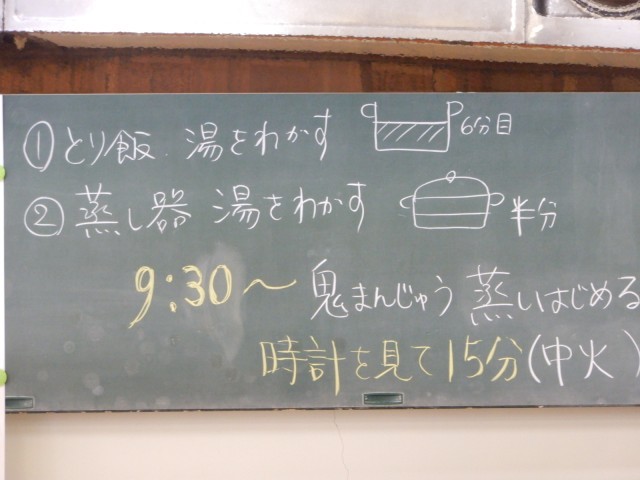 ①とり飯 湯をわかす 6分目
②蒸し器 湯をわかす 半分
9:30〜 鬼まんじゅう 蒸しはじめる
時計を見て15分(中火)